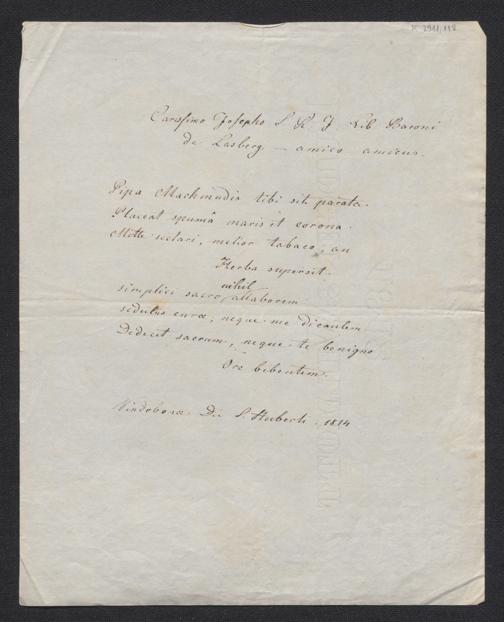 K 2911/118
Carissimo Josepho S R J Lib Baroni
de Lasberg — amico amicus.
Pipa Mackmudis tibi sit parata.
Placeat spumâ maris it corona.
Mitte scitari, melior tabaco, an
Herba supersit.
nihil
simplici sacro, allaborem
sedulus curæ, neque me dicantem
Dedecet sacrum, neque te benigno
Ore bibentem.
Vindobonæ Die S. Huberti. 1814